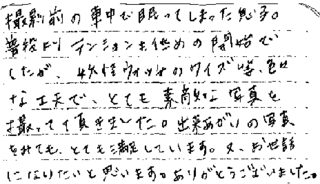 撮影前の車中で眠ってしまった息子。
普段よりテンションも低めの開始で
したが、妖怪ウォッチのクイズ等、色々
な工夫で、とても素敵な写真を
撮って頂きました。出来あがりの写真
をみても、とても満足しています。又、お世話
になりたいと思います。ありがとうございました。